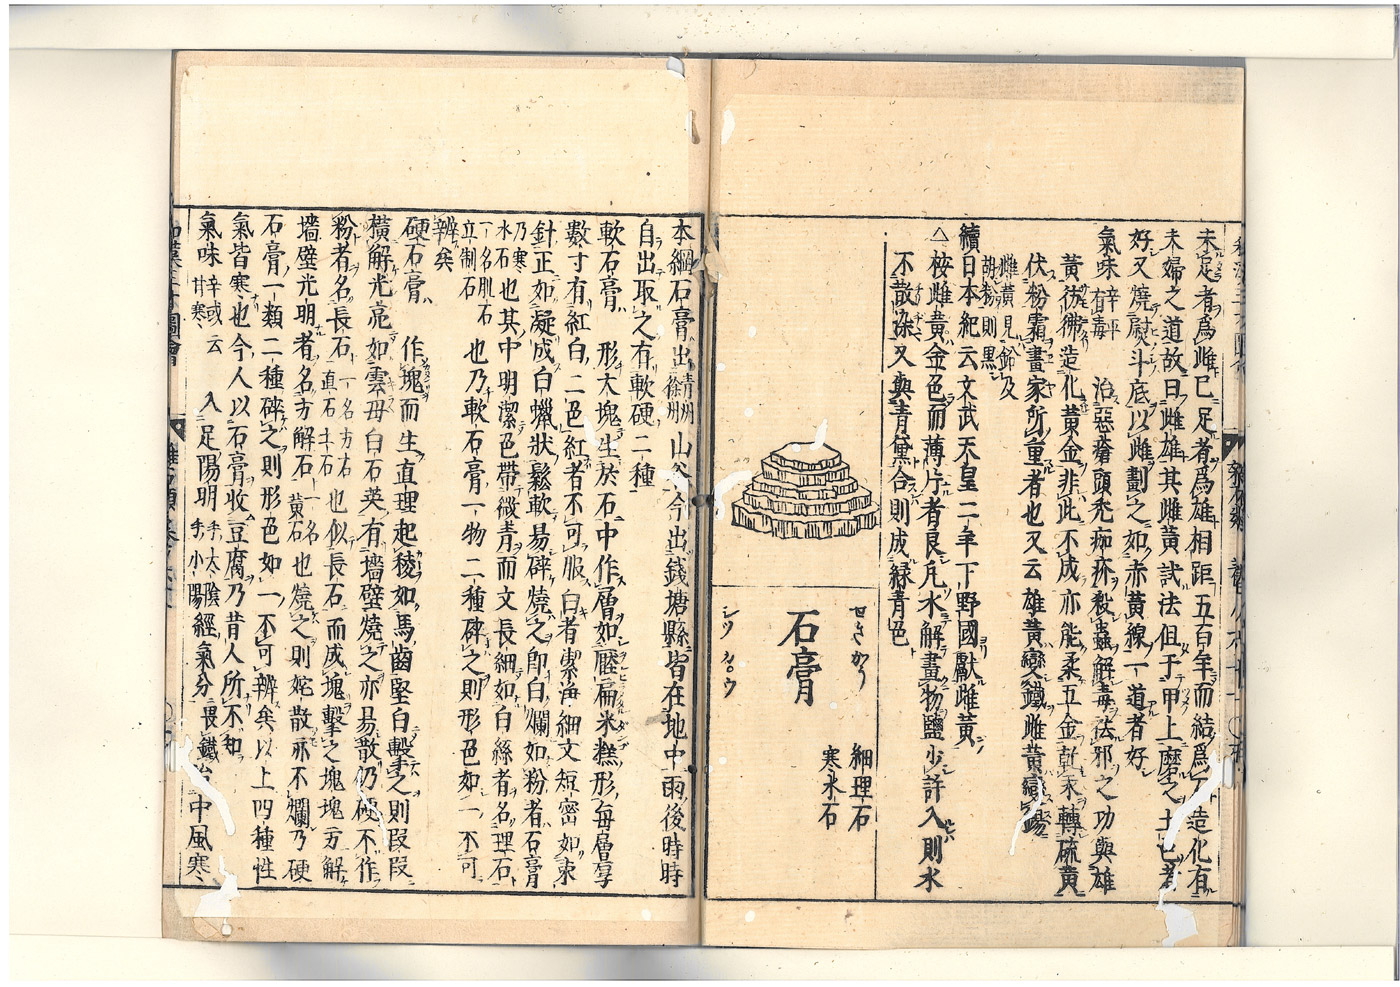 未足者爲雌已足者爲雄相距五百年而結爲造化有
夫婦之道故曰雌雄其雌黃試法但于甲上磨之上色者
好又燒熨斗底以雌劃之如赤黃線一道者好
氣味辛平有毒 治惡瘡頭禿痂疥殺蟲解毒法邪之功與雄
黃彷彿造化黃金非此不成亦能柔五金乾汞轉硫黃
伏粉霜畫家所重者也又云雄黃變鐵雌黃變錫
雌黃見鉛及
胡粉則黑
續日本紀云文武天皇二年下野國獻雌黃
△按雌黃金色而薄片者良凡水解畫物鹽少許入則水
不散染又與青黛合則成緑青色
石膏
せきかう
シツ カ○ウ
細理石
寒水石
本綱石膏出青州徐州山谷今出錢塘縣皆在地中雨後時時
自出取之有軟硬二種
軟石膏 形大塊生於石中作層如壓扁米糕形每層厚
數寸有紅白二色紅者不可服白者潔淨細文短密如束
針正如凝成白蠟狀鬆軟易碎燒之即白爛如粉者石膏
乃寒水石也其中明潔色帶微青而文長細如白絲者名理石
一名肌石立制石也乃軟石膏一物二種碎之則形色如一不可
辨矣
硬石膏 作塊而生直理起稜如馬齒堅白擊之則段段
橫解光亮如雲母白石英有墻壁燒之亦易散仍硬不作
粉者名長石一名方石直石土石也似長石而成塊擊之塊塊方解
墻壁光明者名方解石一名黃石也燒之則姹散亦不爛乃硬
石膏一類二種碎之則形色如一不可辨矣以上四種性
氣皆寒也今人以石膏收豆腐乃昔人所不知
氣味辛或云甘寒 入足陽明手太陰手小陽經氣分畏鐵治中風寒
和漢三才圖會
雜石類